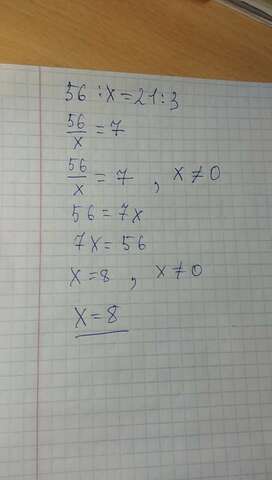 56 : x = 21 : 3
56/x = 7
56/x = 7 , x ≠ 0
56 = 7x
7x = 56
x = 8 , x ≠ 0
x = 8